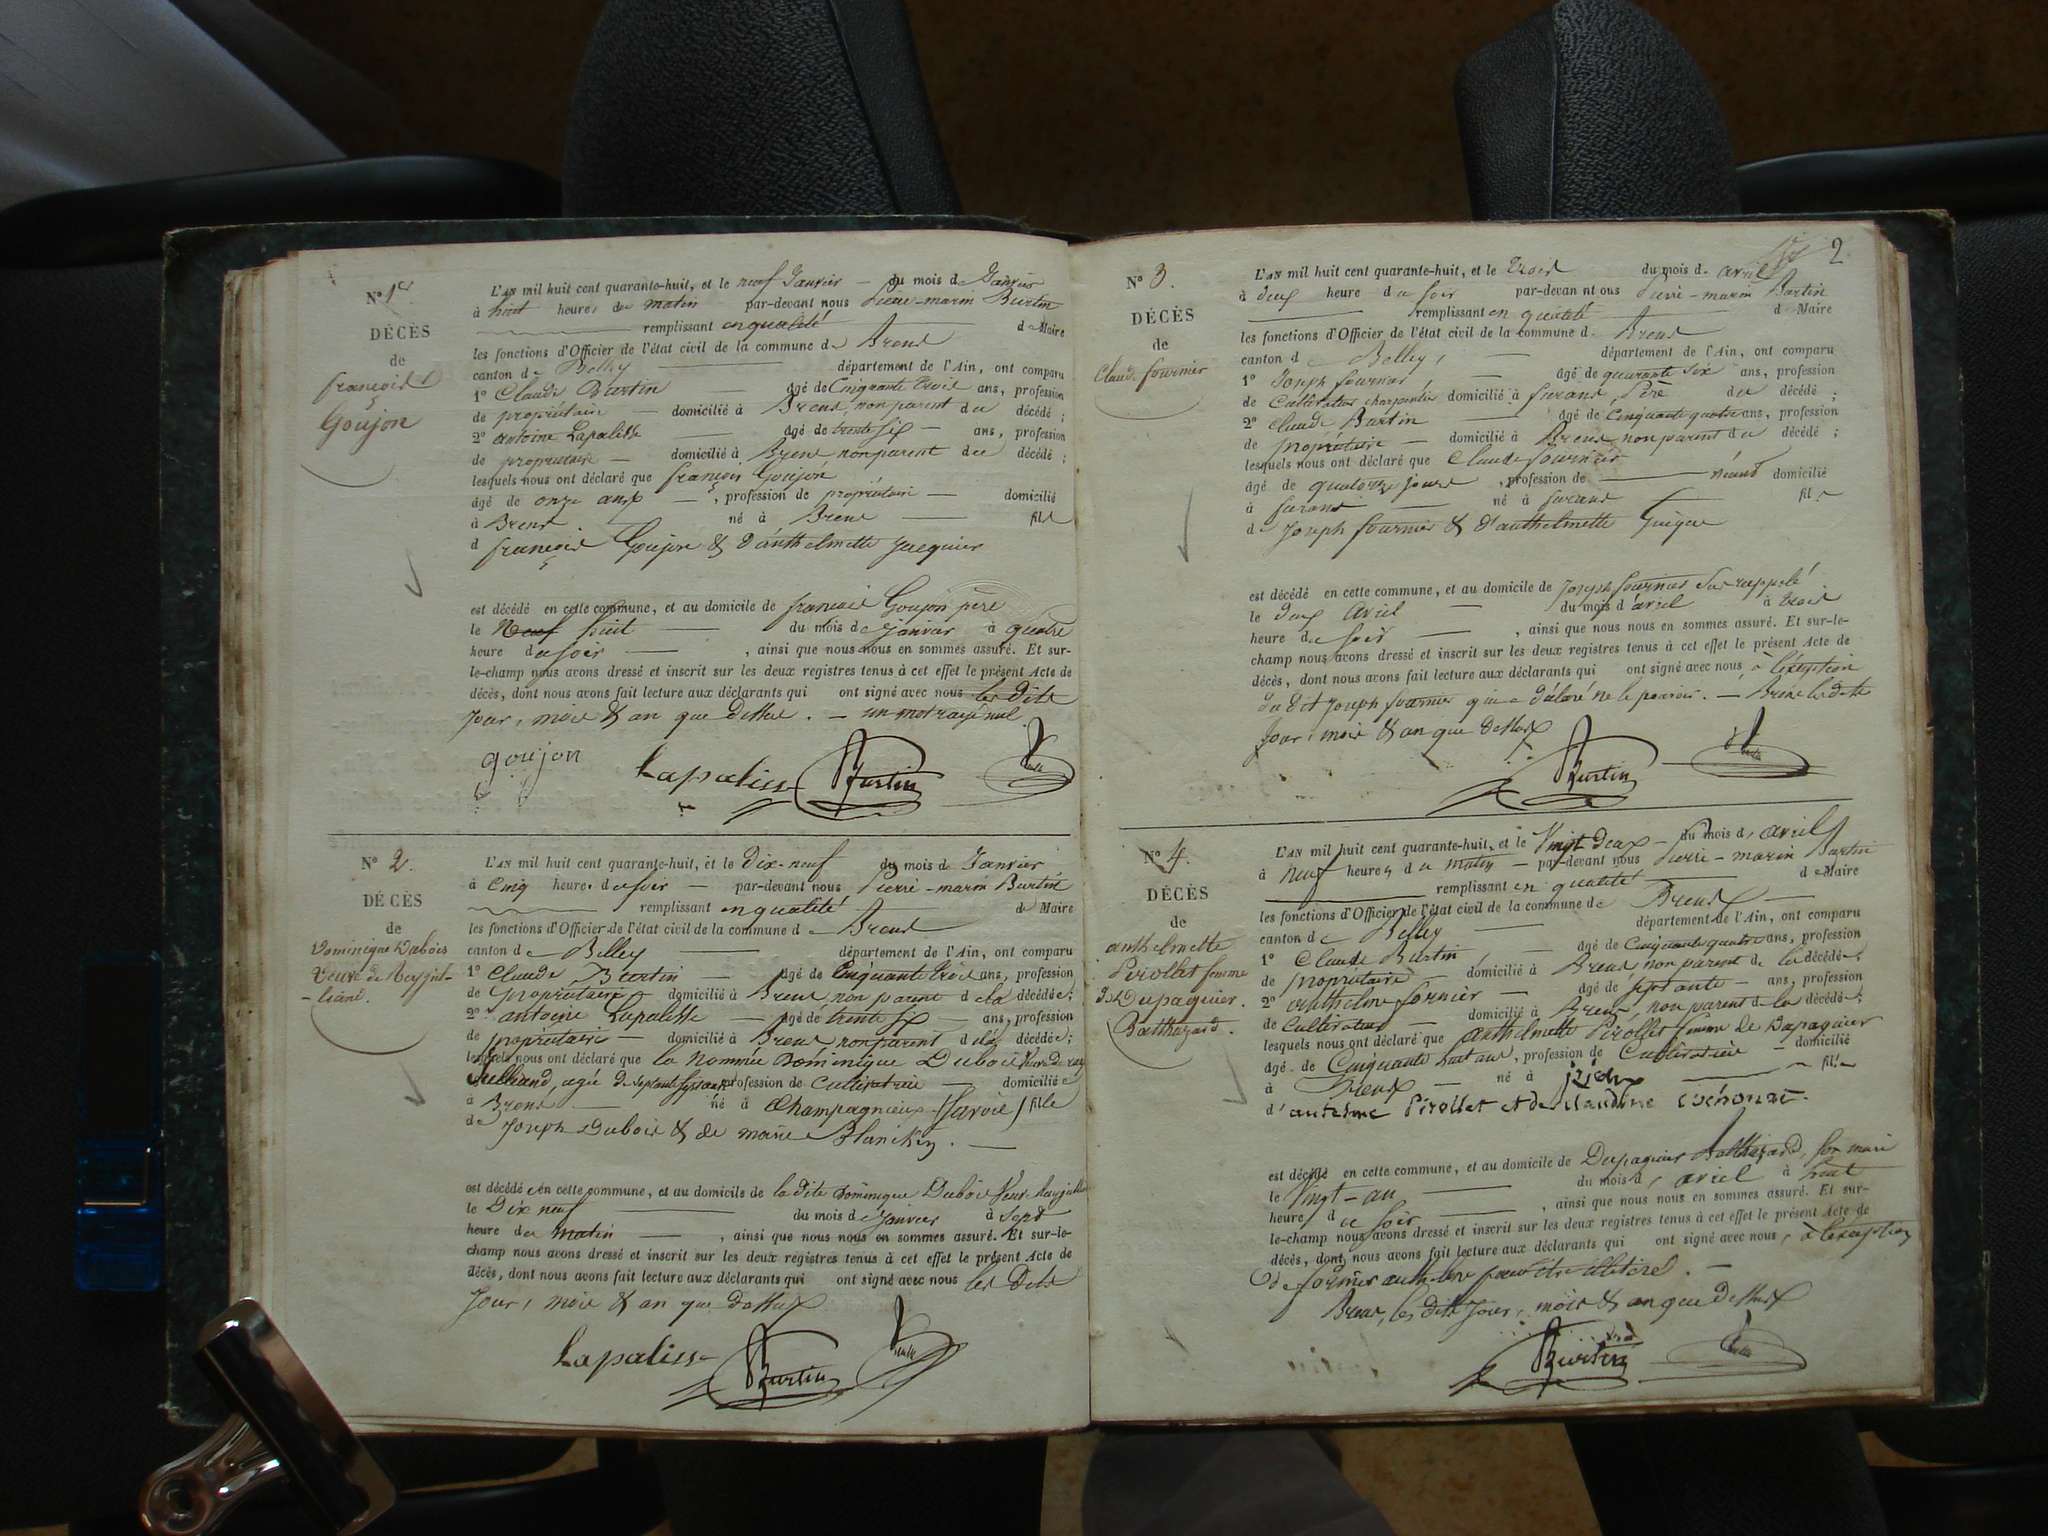 Nº 1er
DÉCÈS
de
françois
Goujon
L'AN mil huit cent quarante-huit, et le neuf Janvier du mois de Janvier
à huit heure, du matin par-devant nous Pierre-marin Burtin
remplissant en qualité de Maire
les fonctions d'Officier de l'état civil de la commune de Brens
canton de Belley département de l'Ain, ont comparu
1º Claude Burtin âgé de Cinquante trois ans, profession
de propriétaire domicilié à Brens, non parent du décédé ;
2º antoine Lapalisse âgé de trente six ans, profession
de propriétaire domicilié à Brens non parent du décédé ;
lesquels nous ont déclaré que françois Goujon
âgé de onze ans , profession de propriétaire domicilié
à Brens né à Brens fils
d françois Goujon & d'anthelmette Jacquier
est décédé en cette commune, et au domicile de francois Goujon père
le Neuf huit du mois de Janvier à quatre
heure du soir , ainsi que nous nous en sommes assuré. Et sur-
le-champ nous avons dressé et inscrit sur les deux registres tenus à cet effet le présent Acte de
décès, dont nous avons fait lecture aux déclarants qui ont signé avec nous les dits
jour, mois & an que dessus. – un mot rayé nul.
goujon Lapalisse Burtin
Nº 2.
DÉCÈS
de
Dominique Dubois
Veuve de Reyjul-
-liand.
L'AN mil huit cent quarante-huit, et le dix-neuf du mois de Janvier
à Cinq heure. du soir par-devant nous Pierre-marin Burtin
remplissant en qualité de Maire
les fonctions d'Officier de l'état civil de la commune de Brens
canton de Belley département de l'Ain, ont comparu
1º Claude Burtin âgé de Cinquante trois ans, profession
de propriétaire domicilié à Brens, non parent de la décédée ;
2º antoine Lapalisse âgé de trente six ans, profession
de propriétaire domicilié à Brens non parent de la décédée ;
lesquels nous ont déclaré que la nommée Dominique Dubois Veuve de rey
Julliand, agée de Septante profession de Cultivatrice domiciliée
à Brens né à Champagnieux (Savoie) fille
de Joseph Dubois & de marie
est décédée en cette commune, et au domicile de la dite Dominique Dubois Veuve
le Dix neuf du mois de Janvier à Sept
heure du matin , ainsi que nous nous en sommes assuré. Et sur-le-
champ nous avons dressé et inscrit sur les deux registres tenus à cet effet le présent Acte de
décès, dont nous avons fait lecture aux déclarants qui ont signé avec nous les Dits
Jour, mois & an que dessus
Lapalisse Burtin
2
Nº 3.
DÉCÈS
de
Claude fournier
L'AN mil huit cent quarante-huit, et le trois du mois d avril
à deux heure du soir par-devant nous Pierre-marin Burtin
remplissant en qualité de Maire
les fonctions d'Officier de l'état civil de la commune de Brens
canton de Belley, département de l'Ain, ont comparu
1º Joseph fournier, âgé de quarante six ans, profession
de Cultivateur charpentier domicilié à furans, Père du décédé ;
2º Claude Burtin âgé de Cinquante quatre ans, profession
de propriétaire domicilié à Brens, non parent du décédé ;
lesquels nous ont déclaré que Claude fournier
âgé de quatorze jours , profession de néant domicilié
à furans né à furans fils
de Joseph fournier & d'anthelmette
est décédé en cette commune, et au domicile de Joseph fournier Susrappelé
le deux avril du mois d'avril à trois
heure du soir , ainsi que nous nous en sommes assuré. Et sur-le-
champ nous avons dressé et inscrit sur les deux registres tenus à cet effet le présent Acte de
décès, dont nous avons fait lecture aux déclarants qui ont signé avec nous à l'éxeption
du dit Joseph fournier qui a déclaré ne le pouvoir. – Brens les dits
jour, mois & an que dessus
Burtin
Nº 4.
DÉCÈS
de
anthelmette
Pérollet femme
de Dupaquier
Balthazard.
L'AN mil huit cent quarante-huit, et le Vingt deux du mois d'avril
à neuf heures du matin par-devant nous Pierre-marin Burtin
remplissant en qualité de Maire
les fonctions d'Officier de l'état civil de la commune de Brens
canton de Belley département de l'Ain, ont comparu
1º Claude Burtin, âgé de Cinquante quatre ans, profession
de propriétaire domicilié à Brens non parent de la décédée ;
2º anthelme fornier âgé de septante ans, profession
de Cultivateur domicilié à Brens, non parent de la décédée ;
lesquels nous ont déclaré que anthelmette Pérollet femme de Dupaquier
âgé de Cinquante huit ans, profession de Cultivatrice domicilié
à Brens né à fille
d'antelme Pérollet et de claudine cochonat.
est décédé en cette commune, et au domicile de Dupaquier Balthazard, son mari
le Vingt-un du mois d, avril à huit
heure du soir , ainsi que nous nous en sommes assuré. Et sur-
le-champ nous avons dressé et inscrit sur les deux registres tenus à cet effet le présent Acte de
décès, dont nous avons fait lecture aux déclarants qui ont signé avec nous, à l'exception
de fornier anthelme pour être illétéré.
Brens, les dits jour, mois & an que dessus
Burtin